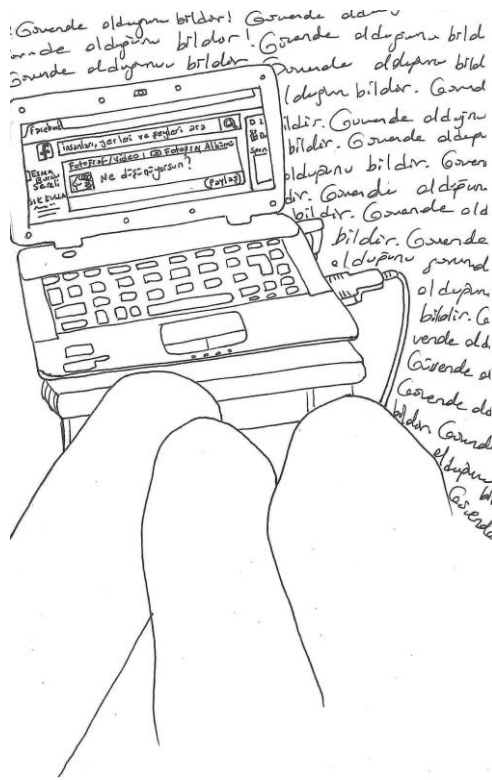 Güvende olduğunu bildir! Güvende oldu
olduğunu bildir! Güvende olduğunu bild
Güvende olduğunu bildir Güvende olduğunu bild
olduğunu bildir. Güvend
bildir. Güvende olduğunu
bildir. Güvende olduğu
olduğunu bildir. Güven
dir. Güvende olduğunu
bildir. Güvende old
bildir. Güvende
olduğunu güvend
olduğunu
bildir. G
vende old
Güvende ol
Güvende old
bildir. Güvend
olduğunu
bil
Güvende
Facebook
f İnsanları, yerleri ve şeyleri ara
Fotoğraf/Video Fotoğraf Albümü
Ne düşünüyorsun?
Paylaş
Esra
Burcu
SIK KULLA